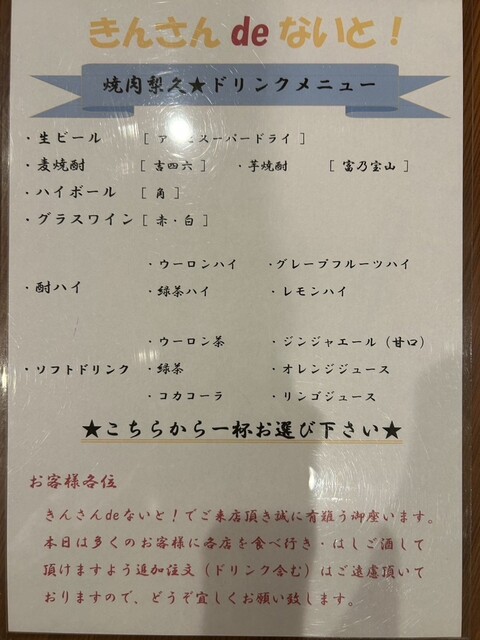 きんさん de ないと！
焼肉梨久★ドリンクメニュー
・生ビール ［ アサヒスーパードライ ］
・麦焼酎 ［ 吉四六 ］ ・芋焼酎 ［ 富乃宝山 ］
・ハイボール ［ 角 ］
・グラスワイン ［ 赤・白 ］
・酎ハイ ・ウーロンハイ ・グレープフルーツハイ
・緑茶ハイ ・レモンハイ
・ソフトドリンク ・ウーロン茶 ・ジンジャエール（甘口）
・緑茶 ・オレンジジュース
・コカコーラ ・リンゴジュース
★こちらから一杯お選び下さい★
お客様各位
きんさんdeないと！でご来店頂き誠に有難う御座います。
本日は多くのお客様に各店を食べ行き・はしご酒して
頂けますよう追加注文（ドリンク含む）はご遠慮頂いて
おりますので、どうぞ宜しくお願い致します。